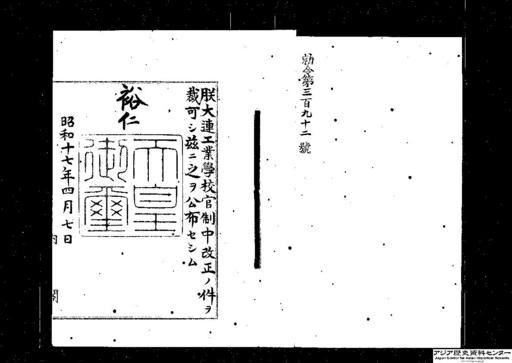 勅令第三百九十二號
朕大連工業學校官制中改正ノ件ヲ
裁可シ茲ニ之ヲ公布セシム
裕仁
天皇
御璽
昭和十七年四月七日
アジア歴史資料センター
Japan Center for Asian Historical Records